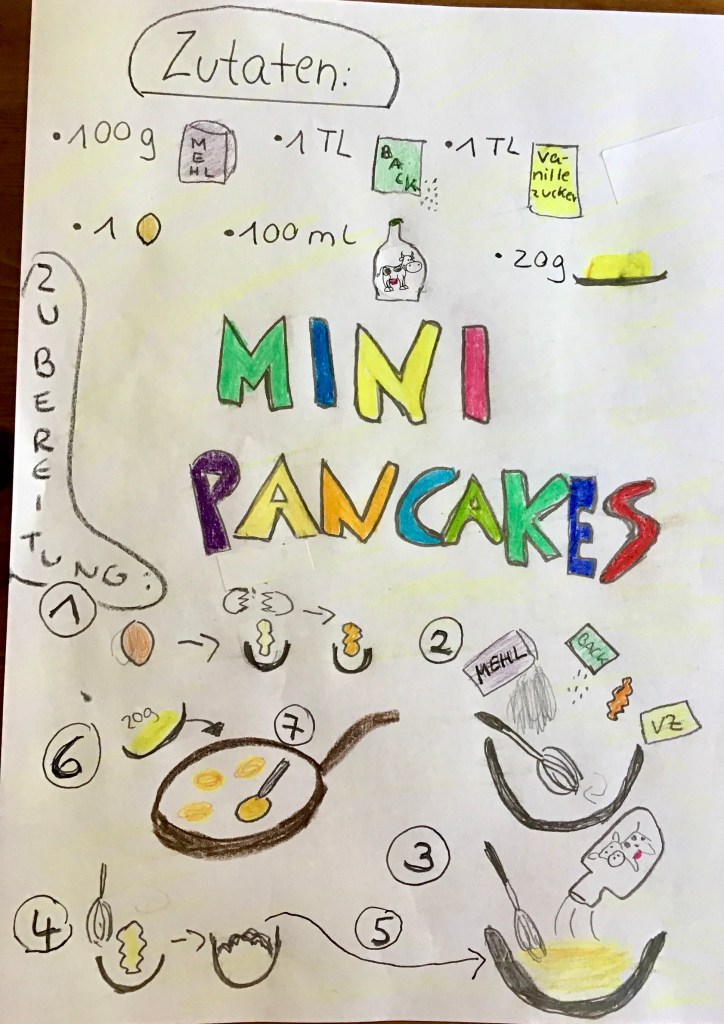 Zutaten:
• 100g MEHL • 1 TL BACK • 1 TL Va-
nille
zucker
• 1 • 100 ml • 20g
ZUBEREITUNG:
MINI
PANCAKES
1
2
MEHL BACK VZ
6 20g 7
3
4 5